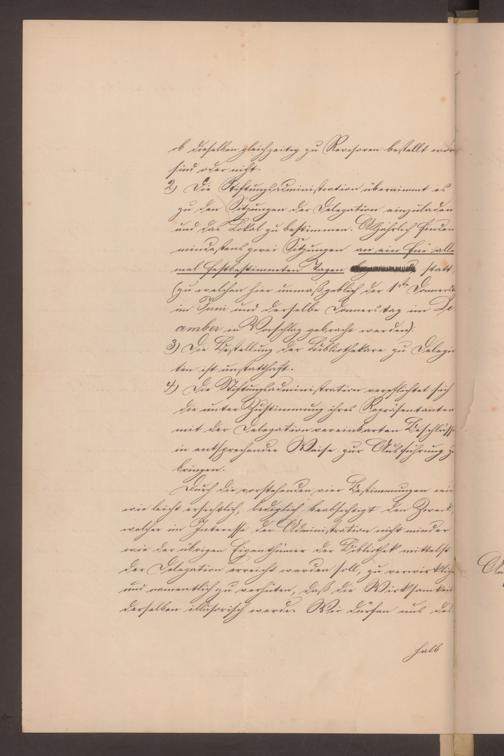 ob dieselben gleichzeitig zu Revisoren bestellt wor
sind oder nicht.
2) Die Stiftungsadministration übernimmt es
zu den Sitzungen der Delegation einzuladen
und das Lokal zu bestimmen. Alljährlich finden
mindestens zwei Sitzungen an ein für alle
mal festbestimmten Tagen statt
(zu welchen hier unmaßgeblich der 1te Donners
im Juni und derselbe Donnerstag im De
cember in Vorschlag gebracht werden).
3) Die Bestellung der Bibliothekare zu Delegir
ten ist unstatthaft.
4) Die Stiftungsadministration verpflichtet sich
die unter Zustimmung ihres Repräsentanten
mit der Delegation vereinbarten Beschlüsse
in entsprechender Weise zur Ausführung z
bringen.
Durch die vorstehenden vier Bestimmungen wird
wie leicht ersichtlich, lediglich beabsichtigt den Zweck
welcher im Interesse der Administration nicht minder
wie der übrigen Eigenthümer der Bibliothek mittelst
der Delegation erreicht werden soll, zu verwirklichen
und namentlich zu verhüten, daß die Wirksamkeit
derselben illusorisch werde. Wir dürfen uns des
halb